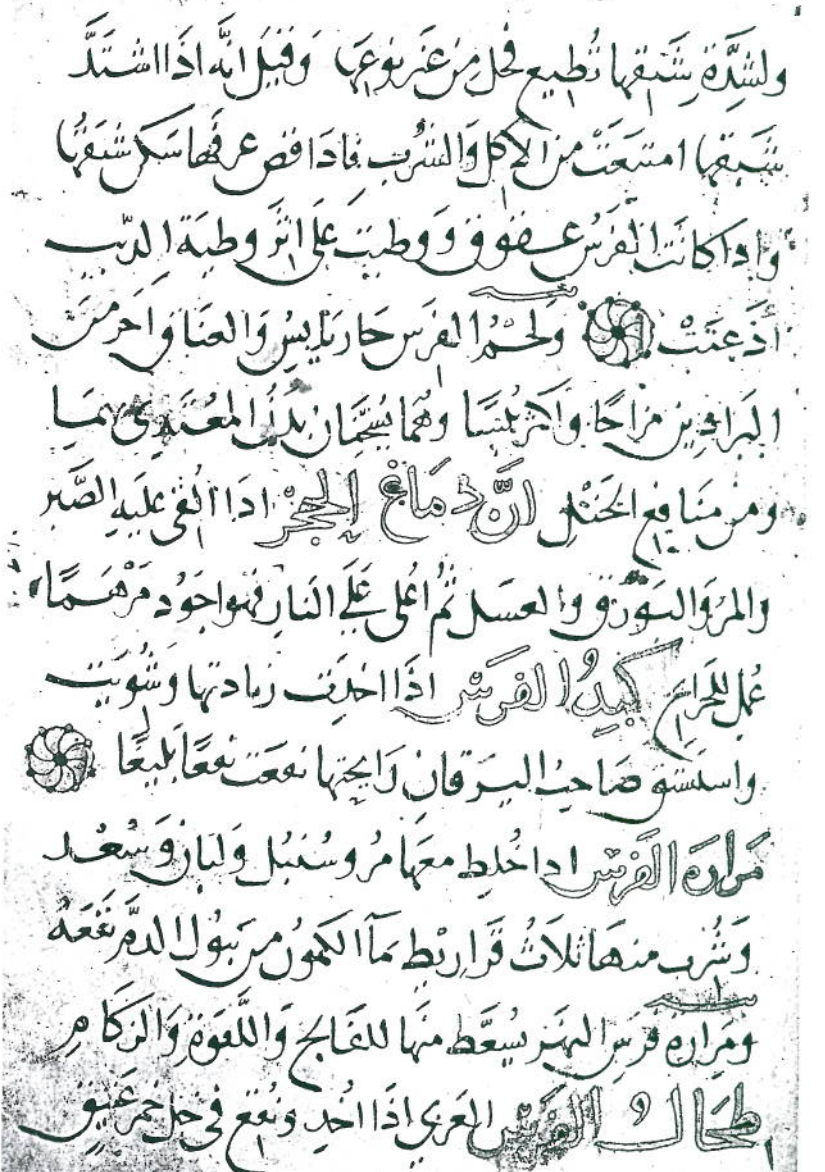 ولشدّة شبقها تُطيع فحل من غير نوعها وقيل انّه اذا اشتدّ
شبقها امتنعَتْ من الاكل والشرب فاذا قص عرفها سكن شبقها
واذا كانت الفرس عقوق ووطيت على اثر وطية الديب
أذعنَتْ ولحم الفرس حار يابس والعناق احر من
البراذين مزاجًا واكثر يبسا وهما يسخّمان بدن المعتدي بها
ومن منافع الخيل انّ دماغ الحجر اذا القي عليه الصَّبر
والمر والبورق والعسل ثم اغلى على النار فهو اجود مَرْهَمًا
عُمل للجراح كبد الفرس اذا اخذت زيادتها وشويت
واستنشق صاحب اليرقان رايحتها نفعت نفعًا بليغًا
مرارة الفرس اذا خُلط معها مر وسُنبُل ولبان وسُعْد
وشُرب منها ثلاثُ قراريط بمآ الكمون من يبول الدم نَفَعَهُ
ومرارة فرس النهر يُسعَّط منها للفالج واللقوة والزكام
طحال الفرس العربي اذا اُخذ ونقع في خل خمر عتيق